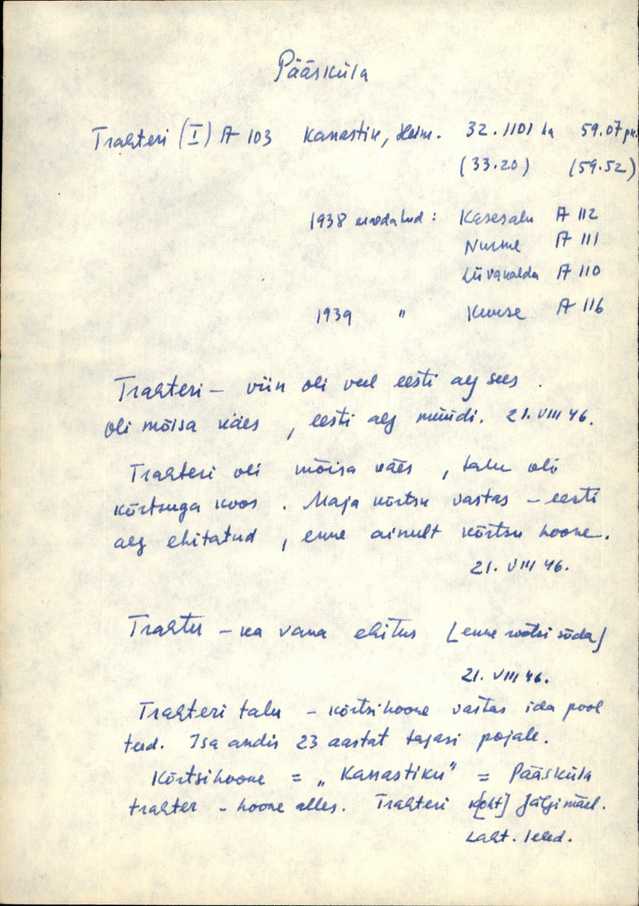 Pääsküla
Trahteri (I) A 103 Kanastik, Helm. 32.1101 ha 59.07
(33.20) (59.52)
1938 : Kasesalu A 112
Nurme A 111
Liivakalda A 110
1939 " Kuuse A 116
Trahteri – viin oli veel eesti aeg sees.
oli mõisa käes, eesti aeg müüdi. 21.VIII 46.
Trahteri oli mõisa käes, talu oli
kõrtsuga koos. Maja kõrtsu vastas – eesti
aeg ehitatud, enne ainult kõrtsu hoone.
21. VIII 46.
Trahter – ka vana ehitus [enne rootsi sõda]
21. VIII 46.
Trahteri talu – kõrtsihoone vastas ida pool
teed. Isa andis 23 aastat tagasi pojale.
Kõrtsihoone = „Kanastiku" = Pääsküla
trahter – hoone alles. Trahteri k[oht] Jälgimäel.
Laht.